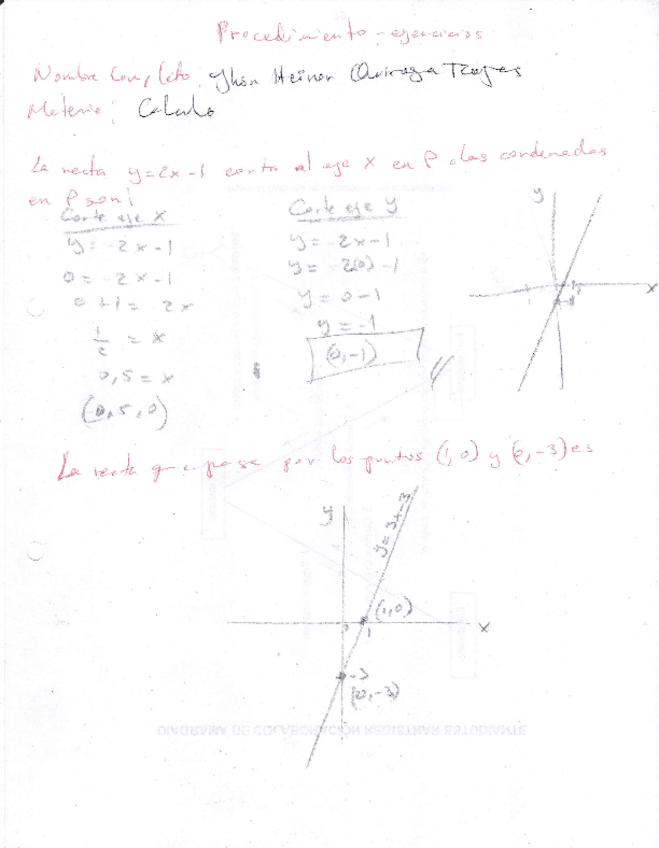 Procedimiento - ejercicios
Nombre Completo: Jhon Heiner Quiroga
Materia: Calculo
La recta y=2x-1 corta al eje x en P. las cordenadas
en P son:
Corte eje X
y = 2x-1
0 = 2x-1
0+1 = 2x
1/2 = x
0,5 = x
(0,5,0)
Corte eje Y
y = 2x-1
y = 2(0)-1
y = 0-1
y = -1
(0,-1)
y
x
La recta que pasa por los puntos (1,0) y (0,-3) es
y
y=3x-3
(1,0)
1
x
-3
(0,-3)
DIAGRAMA DE COLABORACIÓN REGISTRAR ESTUDIANTE